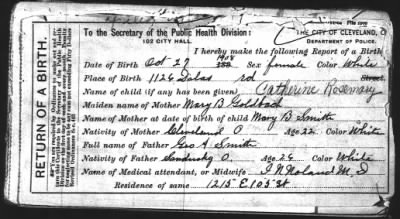 THE CITY OF CLEVELAND,
To the Secretary of the Public Health Division:
DEPARTMENT OF POLICE.
102 CITY HALL.
I hereby make the following Report of a Birth
Date of Birth Oct 27 1908 Sex female Color White
Place of Birth 1126 rd Street.
Name of child (if any has been given) Catherine Rosemary
Maiden name of Mother Mary B Goldbach
Name of Mother at date of birth of child Mary B Smith
Nativity of Mother Cleveland O Age 22 Color White
Full name of Father Geo A Smith
Nativity of Father Sandusky O. Age 26 Color White
Name of Medical attendant, or Midwife I N Noland M.D
Residence of same 1215 E 105 St
RETURN OF A BIRTH.